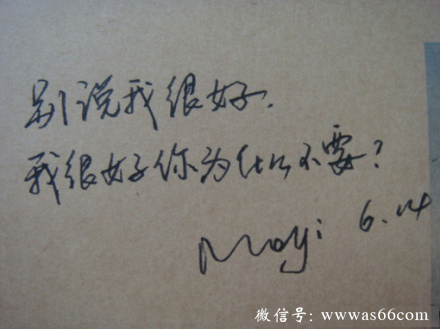 别说我很好.
我很好你为什么不要?
Moyi 6.14
微信号: wwwas66com